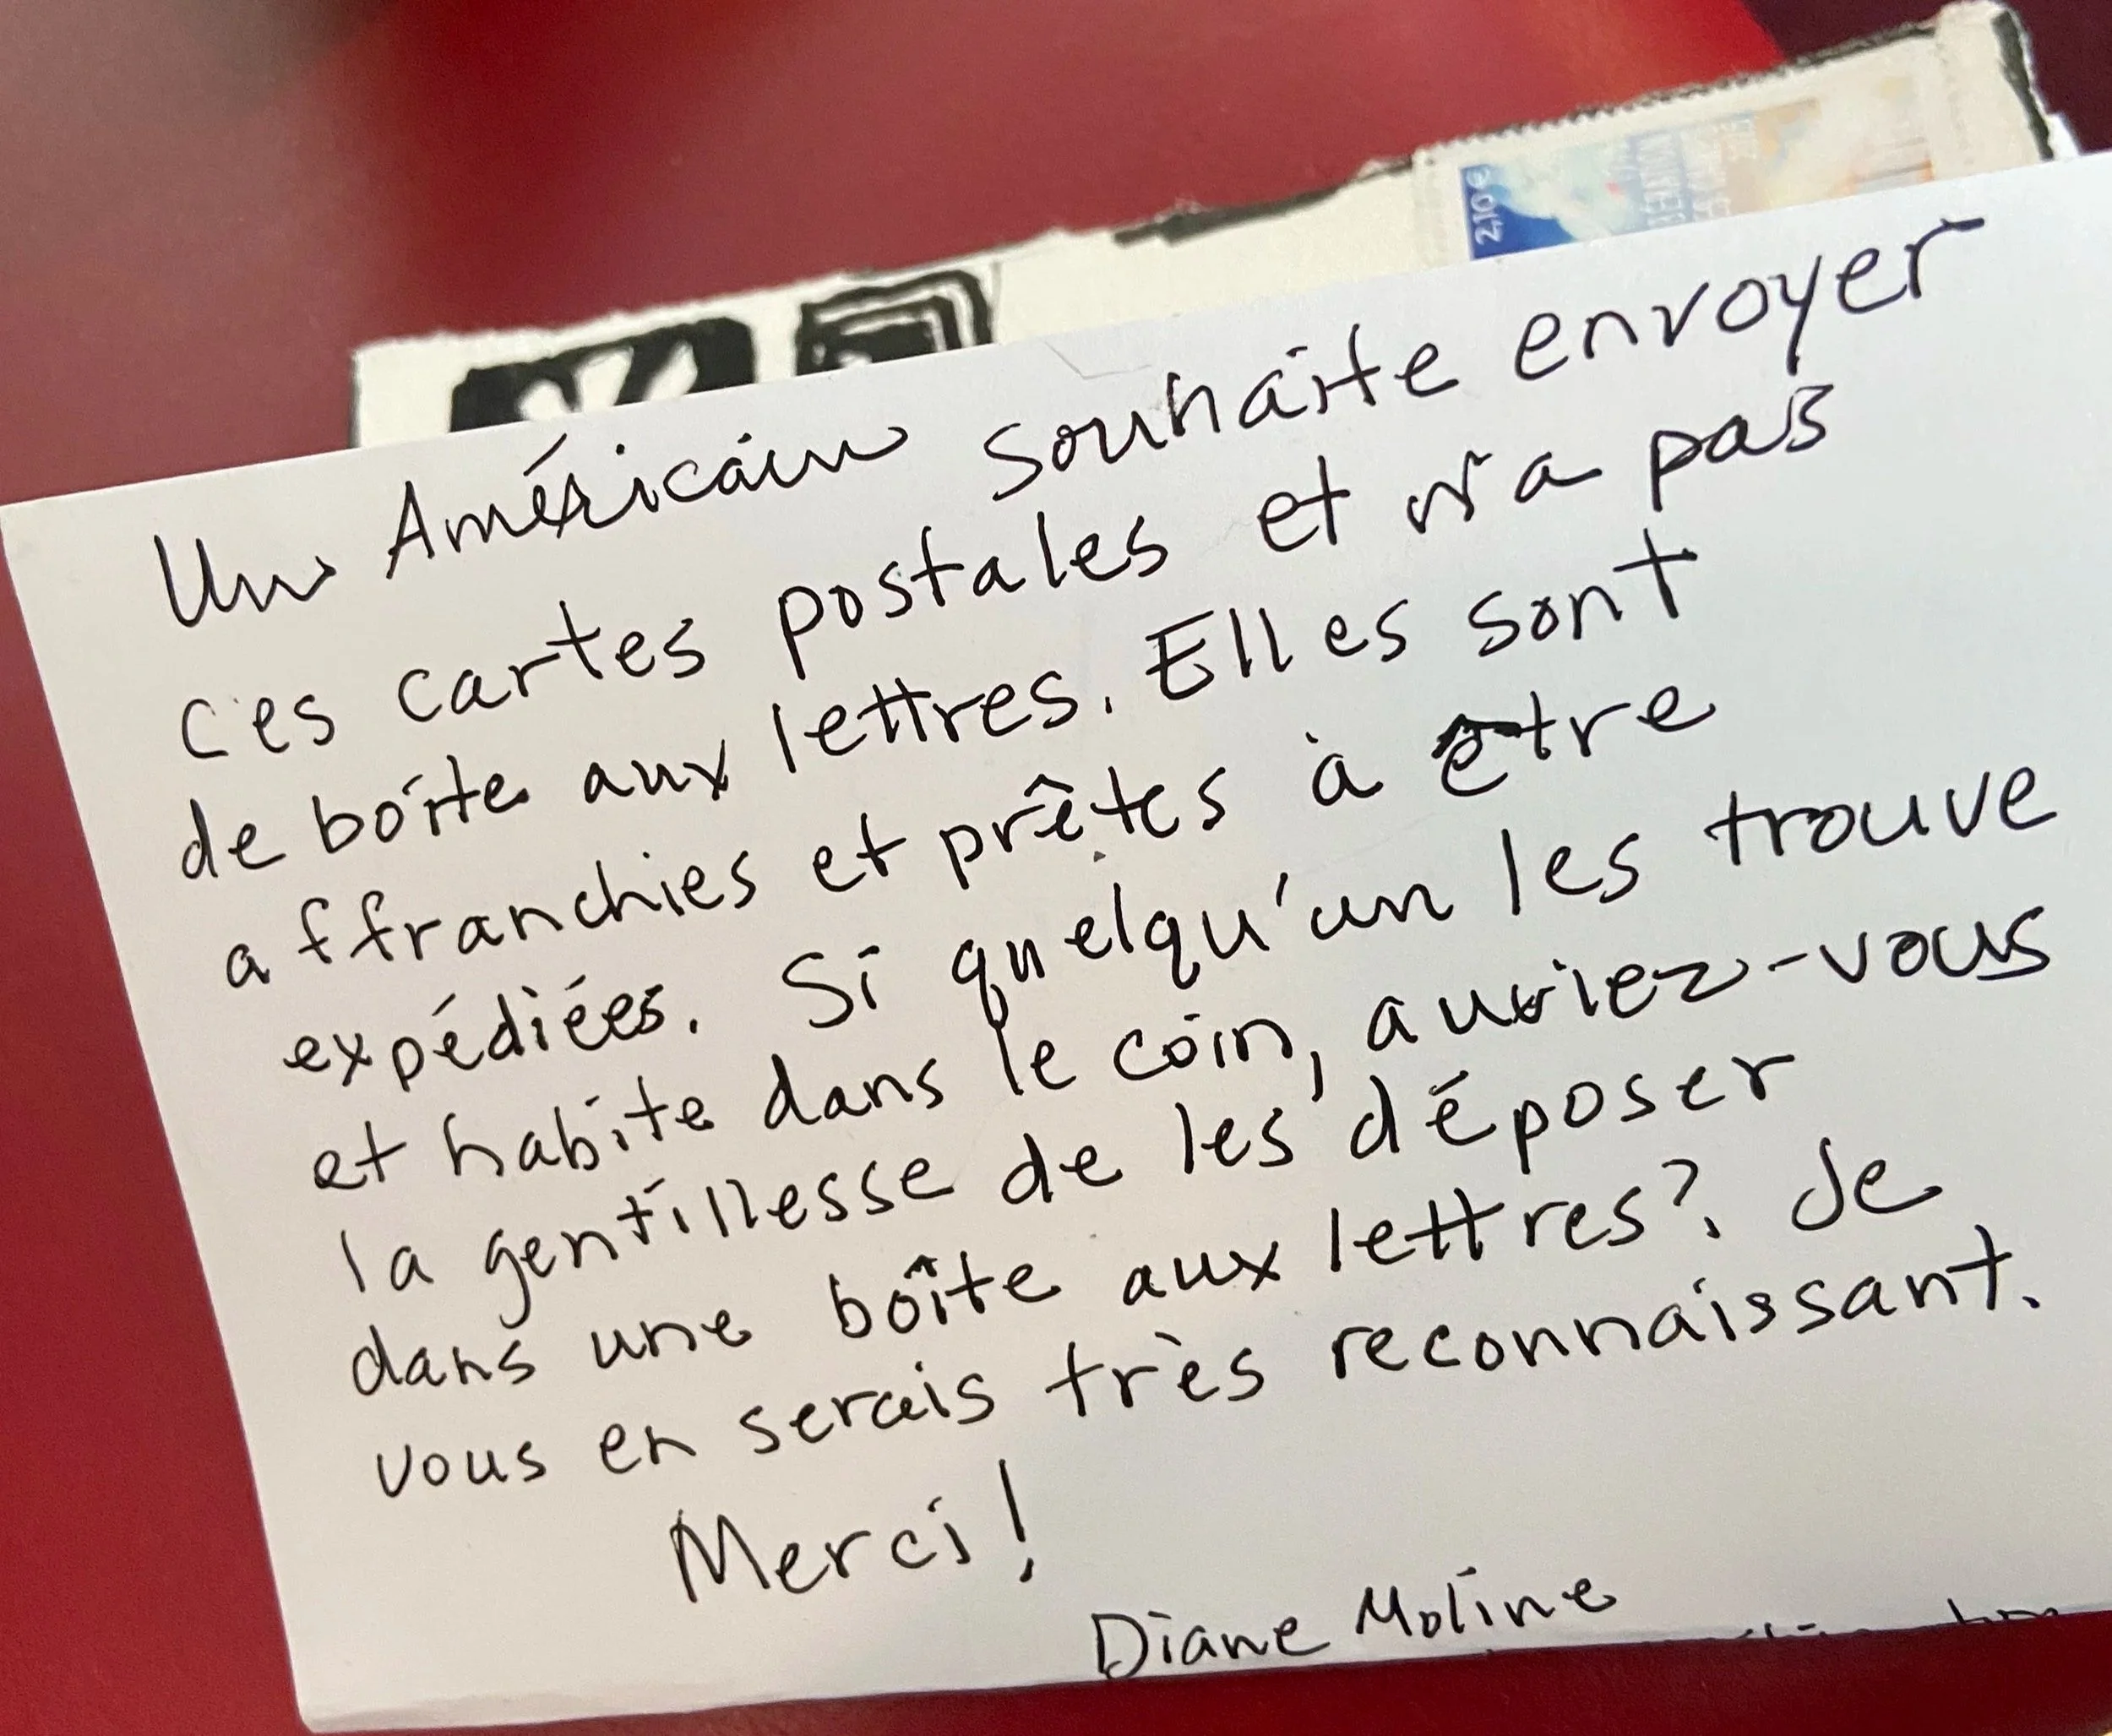 2,10 €
Un Américain souhaite envoyer
ces cartes postales et n'a pas
de boîte aux lettres. Elles sont
affranchies et prêtes à etre
expédiées. Si quelqu'un les trouve
et habite dans le coin, auriez-vous
la gentillesse de les déposer
dans une boîte aux lettres? Je
vous en serais très reconnaissant.
Merci!
Diane Moline